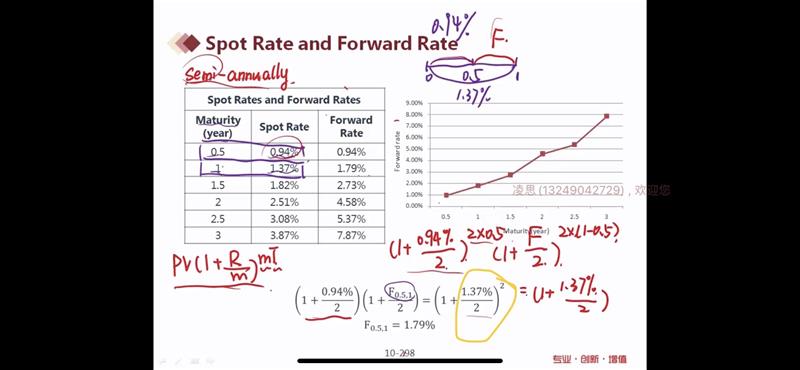 0.94%
F
Spot Rate and Forward Rate
semi-annually
0 0.5 1
1.37%
Spot Rates and Forward Rates
Maturity (year) Spot Rate Forward Rate
0.5 0.94% 0.94%
1 1.37% 1.79%
1.5 1.82% 2.73%
2 2.51% 4.58%
2.5 3.08% 5.37%
3 3.87% 7.87%
Forward rate
9.00%
8.00%
7.00%
6.00%
5.00%
4.00%
3.00%
2.00%
1.00%
0.00%
0.5 1 1.5 2 2.5 3
Maturity (year)
凌思(13249042729)，欢迎您
PV(1+R/m)^mT
(1+0.94%/2)^2×0.5 (1+F/2)^2×(1-0.5)
(1+0.94%/2)(1+F0.5,1/2)=(1+1.37%/2)^2
=(1+1.37%/2)
F0.5,1=1.79%
10-298
专业·创新·增值